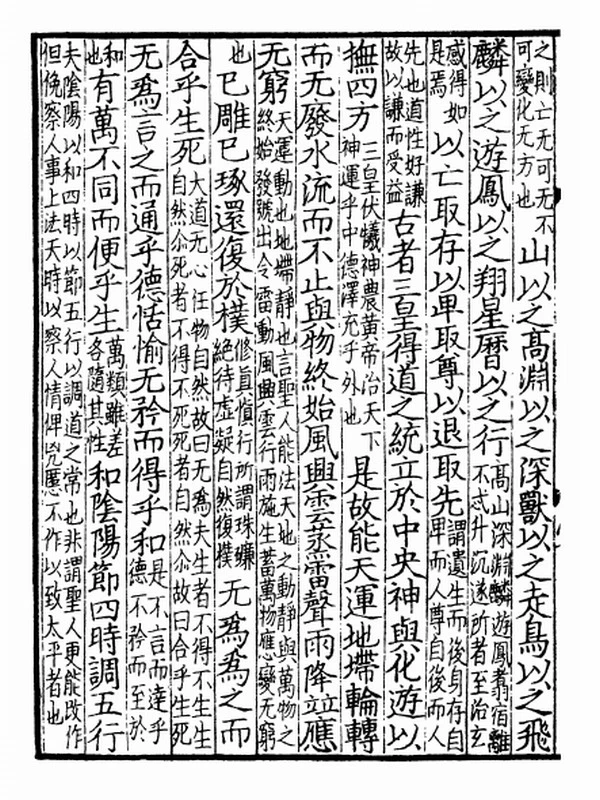 之則亡无可无不
可變化无方也
山以之髙淵以之深獸以之走鳥以之飛
麟以之遊鳳以之翔星曆以之行
髙山深淵麟遊鳳翥宿離
不忒升沉遂所者至治玄
感得如
是焉
以亡取存以卑取尊以退取先
謂遺生而後身存自
卑而人尊自後而人
先也道性好謙
故以謙而受益
古者三皇得道之統立於中央神與化遊以
撫四方
三皇伏犧神農黃帝治天下
神運乎中德澤充乎外也
是故能天運地墆輪轉
而无廢水流而不止與物終始風興雲蒸雷聲雨降竝應
无窮
天運動也地墆靜也言聖人能法天地之動靜與萬物之
終始發號出令雷動風興雲行雨施生蓄萬物應變无窮
也
已雕已琢還復於樸
修真慎行所謂珠嫌
絕待虛凝自然復樸
无為為之而
合乎生死
大道无心任物自然故曰无為夫生者不得不生生
自然尒死者不得不死死者自然尒故曰合乎生死
无為言之而通乎德恬愉无矜而得乎和
是不言而達乎
德不矜而至於
和
也
有萬不同而便乎生
萬類雖差
各隨其性
和陰陽節四時調五行
夫陰陽以和四時以節五行以調道之常也非謂聖人更能改作
但俛察人事上法天時以察人情俾慝不作以致太平者也